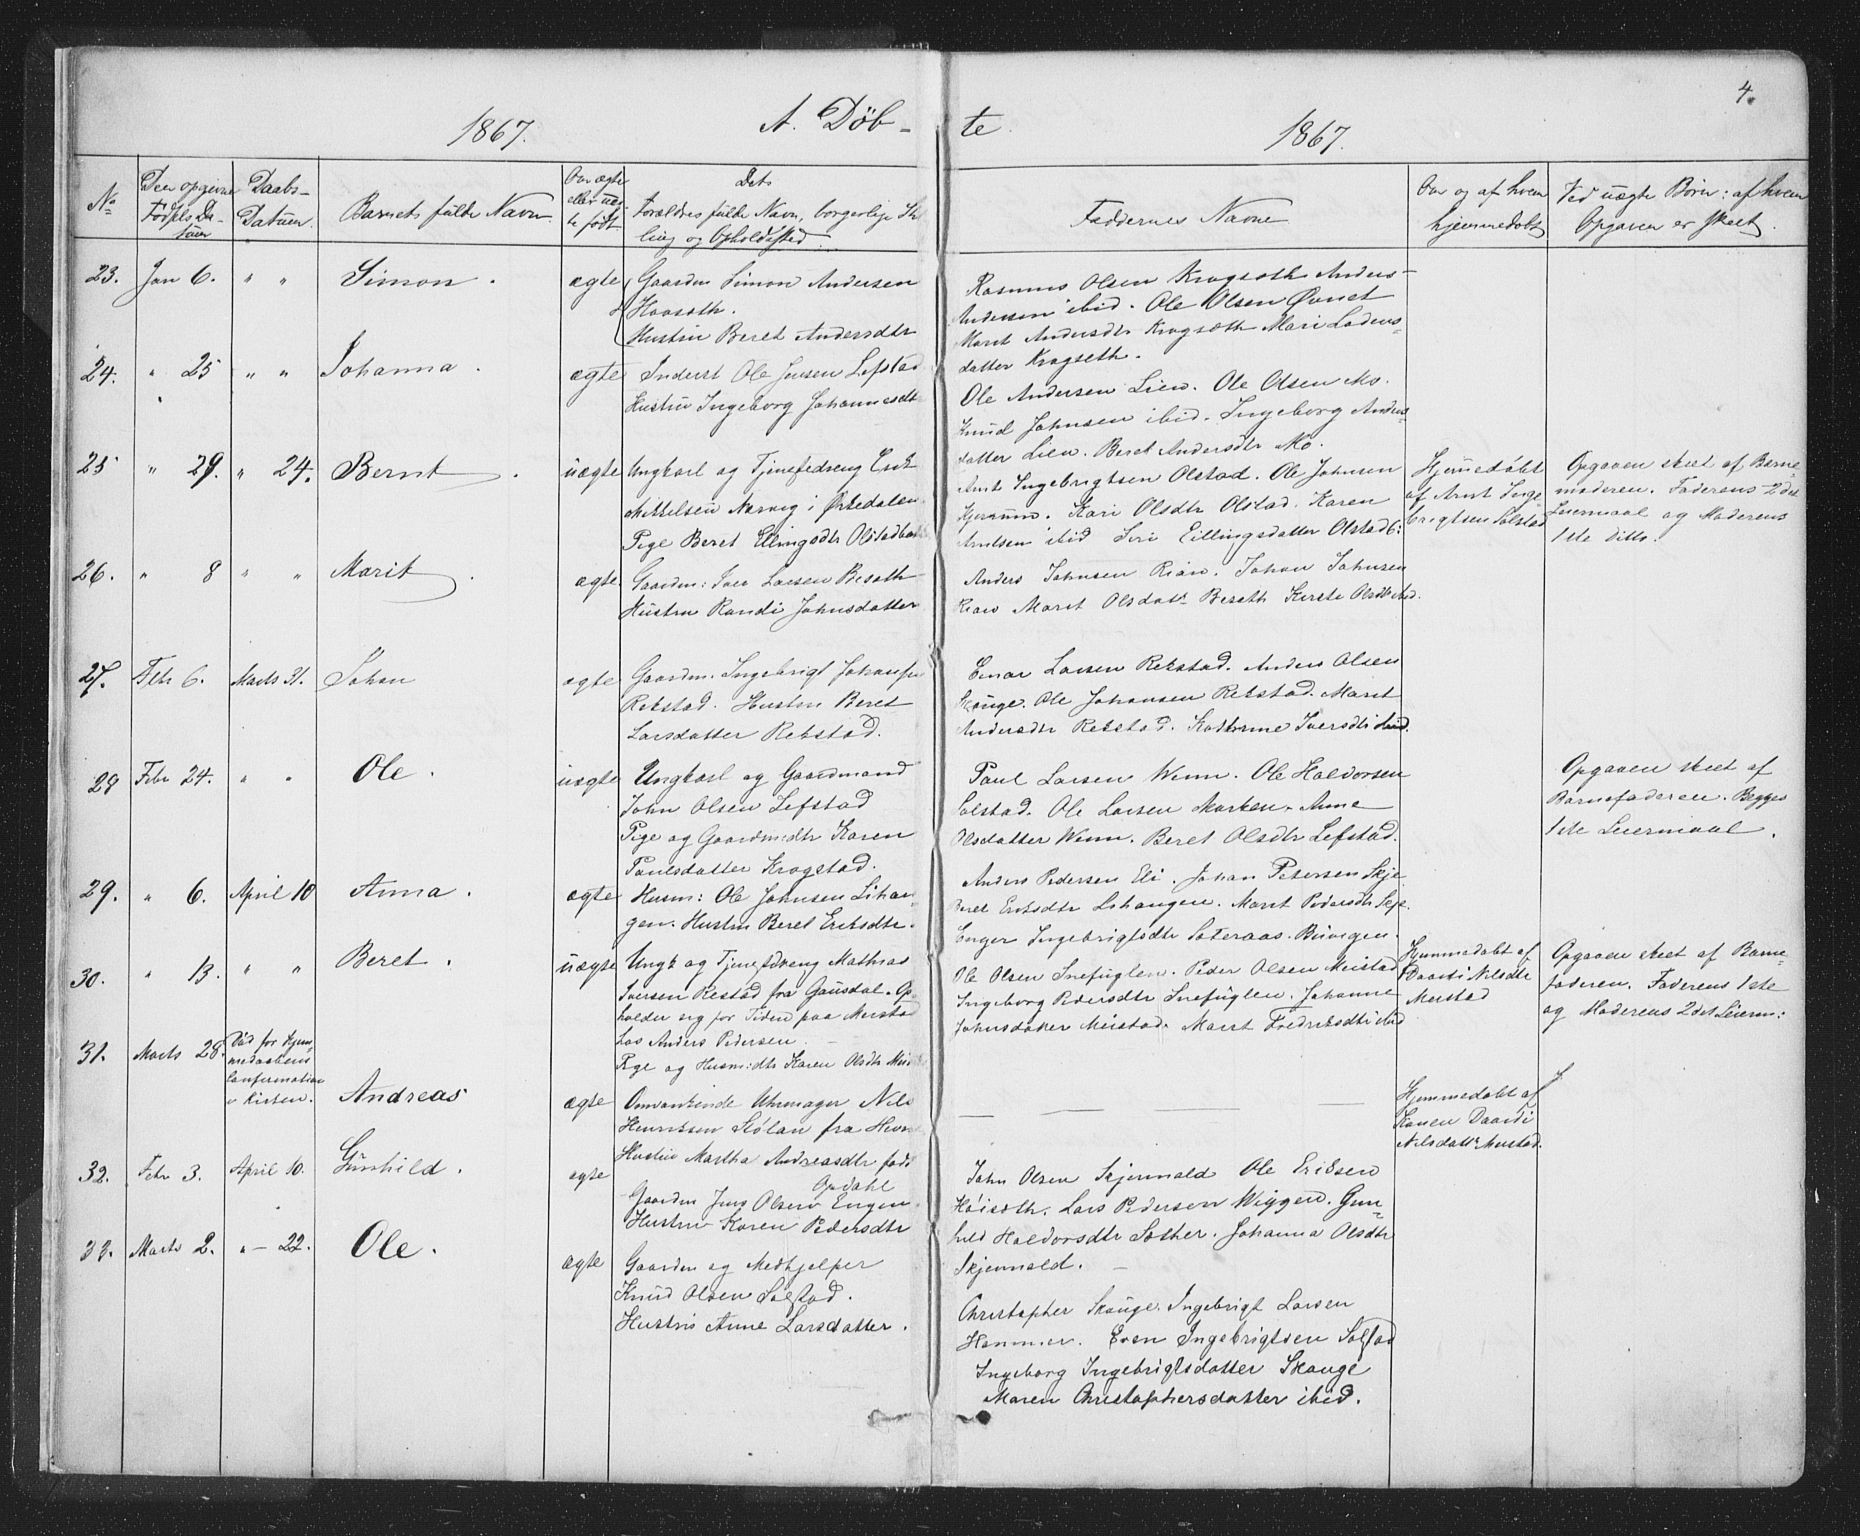 4.
1867. A. Döb- te. 1867.
No
Den opgivne Fødsels Datum
Daabs-Datum
Barnets fulde Navn
Om ægte eller uægte født
Dets Forældres fulde Navn, borgerlige Stilling og Opholdssted
Faddernes Navne
Om og af hvem hjemmedøbt
Ved uægte Børn: af hvem Opgaven er skeet.
23. Jan 6. " " Simon. ægte
Gaardm Simon Andersen
Haasæth.
Hustru Beret Andersdtr
Rasmus Olsen Krogsæth Anders
Andersen ibid. Ole Olsen Øvnet
Maret Andersdtr Krogsæth Mari Ladens-
datter Krogseth.
24. " 25 " " Johanna. ægte
Inderst Ole Jensen Lefstad
Hustru Ingeborg Johannesdtr
Ole Andersen Lien. Ole Olsen Mo.
Knud Johnsen ibid. Ingeborg Anders-
datter Lien. Beret Andersdtr Mo.
25 " 29. " 24. Bernt. uægte
Ungkarl og Tjenestedreng Erik
Mikkelsen Narvig i Ørkedalen
Pige Beret Ellingsdtr Olstad
Arnt Ingebrigtsen Olstad. Ole Johnsen
Kari Olsdtr Olstad. Karen
Arntsen ibid Siri Eillingsdatter Olstad
Hjemmedøbt
af Arnt Inge-
brigtsen Solstad
Opgaven skeet af Barne-
moderen. Faderens 2det
Leiermaal og Moderens
1ste Ditto.
26. " 8 " " Marit. ægte
Gaardm: Iver Larsen Besæth
Hustru Randi Johnsdatter
Anders Johnsen Rian. Johan Johnsen
Rian Marit Olsdatr Beseth Kirste Olsdtr ibid.
27. Febr 6. Marts 31. Johan ægte
Gaardm. Ingebrigt Johansen
Rekstad. Hustru Beret
Larsdatter Rekstad.
Einar Larsen Rekstad. Anders Olsen
Skauge. Ole Johansen Rekstad. Maret
Andersdtr Rekstad. Kathrine Iversdtr ibid.
28 Febr 24. " " Ole. uægte
Ungkarl og Gaardmand
John Olsen Lefstad
Pige og Gaardmdtr Karen
Paulsdatter Krogstad.
Paul Larsen Winn. Ole Haldorsen
Eolstad. Ole Larsen Marken. Anne
Olsdatter Winn. Beret Olsdtr Lefstad.
Opgaven skeet af
Barnefaderen. Begges
1ste Leiermaal.
29. " 6. April 10 Anna. ægte
Husm: Ole Johnsen Lihau-
gen. Hustru Beret Eriksdtr.
Anders Pedersen Eli. Johan Petersen Skje
Beret Eriksdtr Lihaugen. Marit Pedersdtr Skje.
Enger Ingebrigtsdtr Sæteraas. Buvigen.
30. " 13. " " Beret. uægte
Ungk og Tjenestdreng Mathias
Iversen Restad fra Gausdal. Op-
holder sig for Tiden paa Meistad
hos Anders Pedersen.
Pige og Husm:dtr Karen Olsdtr
Ole Olsen Snefuglen. Peder Olsen Meistad
Ingeborg Pedersdtr Snefuglen. Johanne
Johnsdatter Meistad. Marit Fredriksdtr ibid
Hjemmedøbt af
Daardi Nilsdtr
Meistad
Opgaven skeet af Barne-
faderen. Faderens 1ste
og Moderens 2det Leierm:
31. Marts 28. Død før Hjem-
medaabens
Confirmation
i Kirken. Andreas ægte
Omvankende Uhrmager Nils
Henriksen Stølan fra Hevne
Hustru Martha Andreasdtr født
Opdahl
Hjemmedøbt af
Konen Daardi
Nilsdatr Meistad.
32. Febr 3. April 10. Gunhild. ægte
Gaardm Jens Olsen Engen
Hustru Karen Pedersdtr
John Olsen Skjenvald Ole Eriksen
Høisæth. Lars Pedersen Wiggen. Gun-
hild Haldorsdtr Sæther. Johanna Olsdtr
Skjenvald.
33. Marts 2. " - 22. Ole. ægte
Gaardm og Medhjelper
Knud Olsen Solstad.
Hustru Anne Larsdatter.
Christopher Skauge. Ingebrigt Larsen
Hammer. Even Ingebrigtsen Solstad
Ingeborg Ingebrigtsdatter Skauge
Maren Christophersdatter ibid.